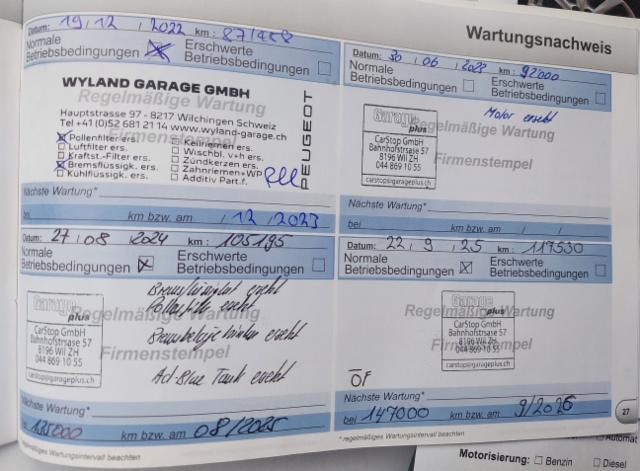 Wartungsnachweis
Datum: 19 / 12 / 2022 km: 87'458
Normale Betriebsbedingungen
Erschwerte Betriebsbedingungen
WYLAND GARAGE GMBH
Regelmäßige Wartung
Hauptstrasse 97 - 8217 Wilchingen Schweiz
Tel +41 (0)52 681 21 14 www.wyland-garage.ch
Firmenstempel
PEUGEOT
Pollenfilter ers.
Luftfilter ers.
Kraftst.-Filter ers.
Bremsflüssigk. ers.
Kühlflüssigk. ers.
Keilriemen ers.
Wischbl. v+h ers.
Zündkerzen ers.
Zahnriemen+WP
Additiv Part.f.
Nächste Wartung*
bei km bzw. am / 12 / 2023
Datum: 30 / 06 / 2023 km: 92000
Normale Betriebsbedingungen
Erschwerte Betriebsbedingungen
Motor ersetzt
Garage plus
Regelmäßige Wartung
CarStop GmbH
Bahnhofstrasse 57
8196 Wil ZH
044 869 10 55
Firmenstempel
carstop@garageplus.ch
Nächste Wartung*
bei km bzw. am / /
Datum: 27 / 08 / 2024 km: 105195
Normale Betriebsbedingungen
Erschwerte Betriebsbedingungen
ersetzt
ersetzt
Garage plus
Regelmäßige Wartung
CarStop GmbH
Bahnhofstrasse 57
8196 Wil ZH
044 869 10 55
Bremsbeläge hinten ersetzt
Firmenstempel
carstop@garageplus.ch
Ad Blue Tank ersetzt
Nächste Wartung*
bei 135000 km bzw. am 08/2025
Datum: 22 / 9 / 25 km: 117530
Normale Betriebsbedingungen
Erschwerte Betriebsbedingungen
Garage plus
Regelmäßige Wartung
CarStop GmbH
Bahnhofstrasse 57
8196 Wil ZH
044 869 10 55
Firmenstempel
carstop@garageplus.ch
ÖF
Nächste Wartung*
bei 147000 km bzw. am 9/2026
27
* regelmäßiges Wartungsintervall beachten
* regelmäßiges Wartungsintervall beachten
Automat
Motorisierung: Benzin Diesel